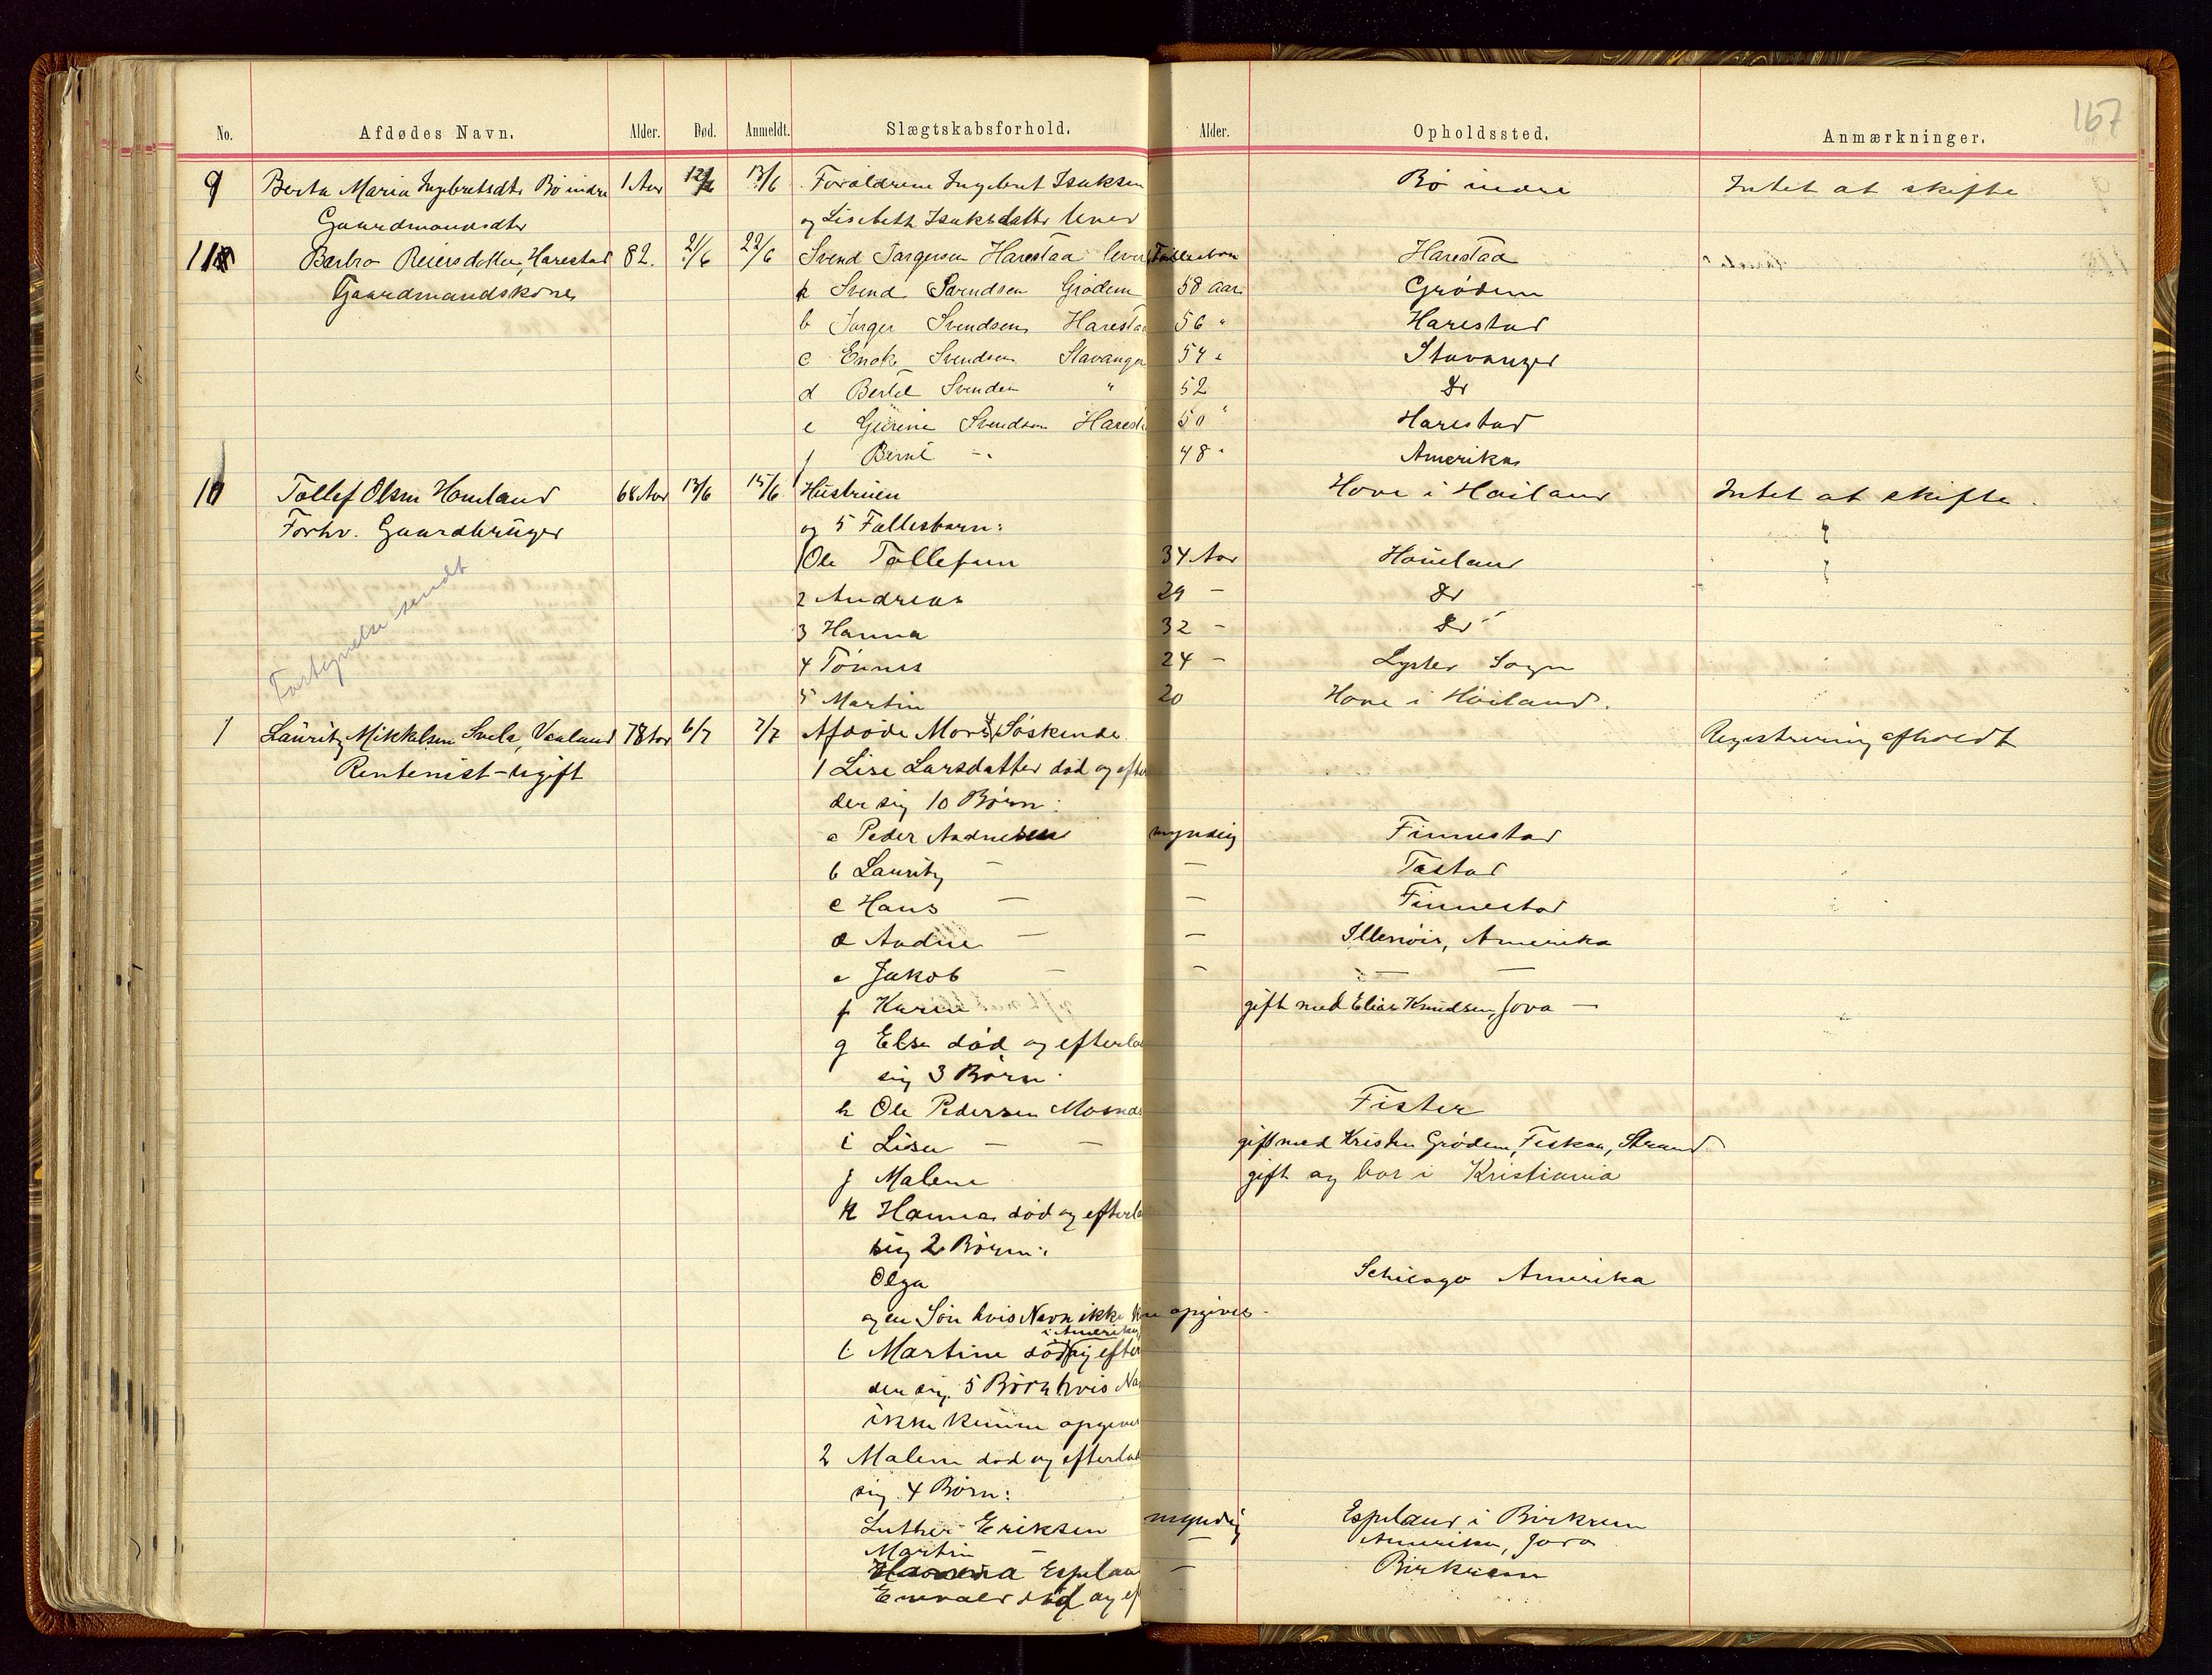 167
No. Afdødes Navn. Alder. Død. Anmeldt. Slægtskabsforhold. Alder. Opholdssted. Anmærkninger.
9 Berta Maria Ingebretsdtr Bø indre 1 Aar 12/6 13/6 Forældrene Ingebret Isaksen Bø indre Intet at skifte
Gaardmandsdtr og Lisebeth Isaksdatter lever
11 Berbro Reiersdatter, Harestad 82. 21/6 22/6 Svend Jørgensen Harestad lever Fællesbørn Harestad
Gaardmandskone a Svend Svendsen Grødem 58 aar Grødem
b Jørger Svendsen Harestad 56 " Harestad
c Enok Svendsen Stavanger 54 " Stavanger
d Bertel Svendsen " 52 Do
e Gurine Svendsen Harest 50 " Harestad
f Berne - 48 " Amerika
10 Tollef Olsen Homeland 68 Aar 13/6 15/6 Hustruen Hove i Høiland Intet at skifte.
Forhv. Gaardbruger og 5 Fællesbørn:
1 Ole Tollefsen 34 Aar Homeland
2 Andreas 29 - Do
Fortegnelse sendt
3 Hanna 32 - Do
4 Tønnes 24 - Lyster Sogn
5 Martin 20 Hove i Høiland.
1 Lauritz Mikkelsen Svela, Vaaland 78 Aar 6/7 7/7 Afdøde Mors Søskende. Registrering afholdt
Rentenist - ugift 1 Lise Larsdatter død og efter
der sig 10 Børn:
a Peder Andresen myndig Finnestad
b Lauritz - - Tastad
c Hans - - Finnestad
d Andre - - Illenois, Amerika
e Jakob - - - -
f Karen gift med Elias Knudsen, Jova -
g Elsa død og efterla
sig 3 Børn:
h Ole Pedersen Mosnes Fister
i Lisa - - gift med Kristen Grødem, Fiskaa, Strand
j Malene gift og bor i Kristiania
k Hanna død og efterla
sig 2 Børn:
Olga Schicago Amerika
og en Søn hvis Navn ikke kan opgives -
i Amerika
l Martine død og efter
der sig 5 Børn hvis Na
ikke kunne opgives
2 Malene død og efterlod
sig 4 Børn:
Luther Eriksen myndig Espeland i Birkrem
Martin - - Amerika, Jova
Espelan - Birkrem
død og ef